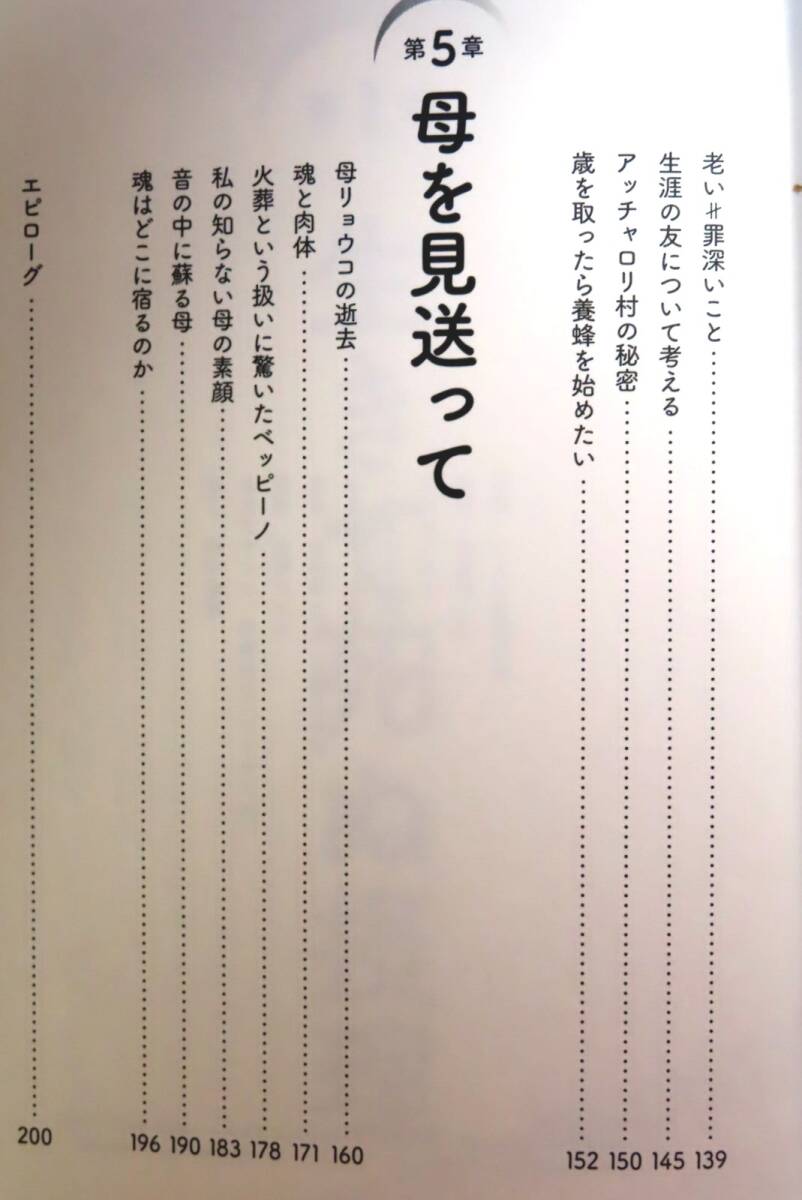 老い≠罪深いこと……………… 139
生涯の友について考える……………… 145
アッチャロリ村の秘密……………… 150
歳を取ったら養蜂を始めたい……………… 152
第5章 母を見送って
母リョウコの逝去……………… 160
魂と肉体……………… 171
火葬という扱いに驚いたベッピーノ……………… 178
私の知らない母の素顔……………… 183
音の中に蘇る母……………… 190
魂はどこに宿るのか……………… 196
エピローグ……………… 200